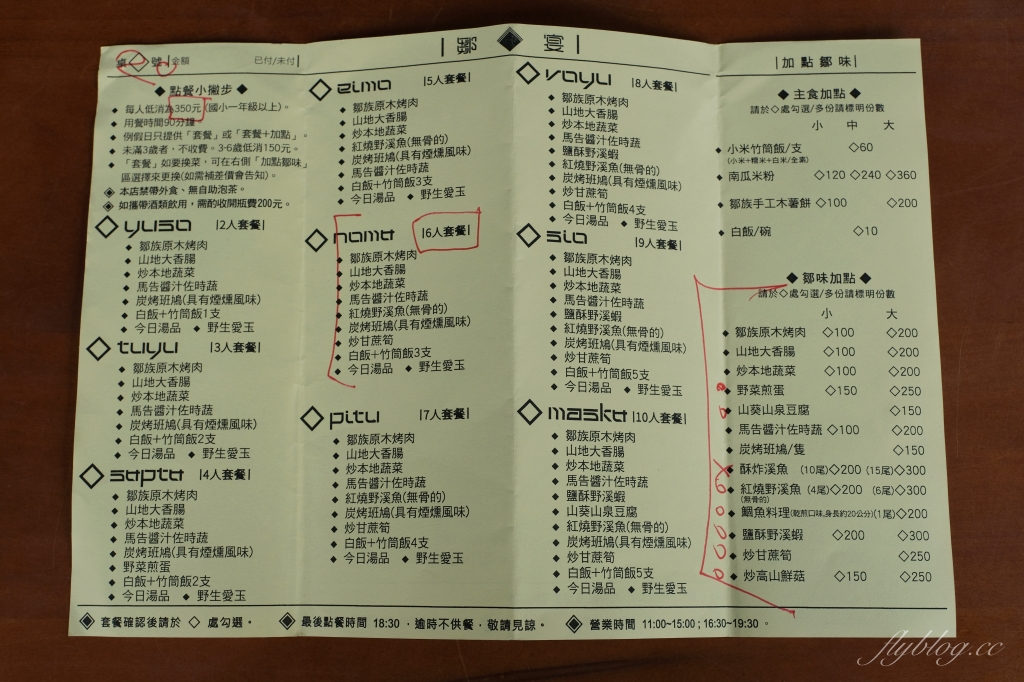 |鄒◆宴|
桌◇號|金額 已付/未付|
◆ 點餐小撇步 ◆
◆ 每人低消為350元(國小一年級以上)。
◆ 用餐時間90分鐘
◆ 例假日只提供「套餐」或「套餐+加點」。
◆ 未滿3歲者,不收費。3-6歲低消150元。
◆ 「套餐」如要換菜,可在右側「加點鄒味」
區選擇來更換(如需補差價會告知)。
◈ 本店禁帶外食、無自助泡茶。
◈ 如攜帶酒類飲用,需酌收開瓶費200元。
◇ yuso |2人套餐|
◆ 鄒族原木烤肉
◆ 山地大香腸
◆ 炒本地蔬菜
◆ 馬告醬汁佐時蔬
◆ 炭烤班鳩(具有煙燻風味)
◆ 白飯+竹筒飯1支
◆ 今日湯品 ◆ 野生愛玉
◇ tuyu |3人套餐|
◆ 鄒族原木烤肉
◆ 山地大香腸
◆ 炒本地蔬菜
◆ 馬告醬汁佐時蔬
◆ 炭烤班鳩(具有煙燻風味)
◆ 白飯+竹筒飯2支
◆ 今日湯品 ◆ 野生愛玉
◇ sopto |4人套餐|
◆ 鄒族原木烤肉
◆ 山地大香腸
◆ 炒本地蔬菜
◆ 馬告醬汁佐時蔬
◆ 炭烤班鳩(具有煙燻風味)
◆ 野菜煎蛋
◆ 白飯+竹筒飯2支
◆ 今日湯品 ◆ 野生愛玉
◇ eimo |5人套餐|
◆ 鄒族原木烤肉
◆ 山地大香腸
◆ 炒本地蔬菜
◆ 紅燒野溪魚(無骨的)
◆ 炭烤班鳩(具有煙燻風味)
◆ 馬告醬汁佐時蔬
◆ 白飯+竹筒飯3支
◆ 今日湯品 ◆ 野生愛玉
◇ nomo |6人套餐|
◆ 鄒族原木烤肉
◆ 山地大香腸
◆ 炒本地蔬菜
◆ 馬告醬汁佐時蔬
◆ 紅燒野溪魚(無骨的)
◆ 炭烤班鳩(具有煙燻風味)
◆ 炒甘蔗筍
◆ 白飯+竹筒飯3支
◆ 今日湯品 ◆ 野生愛玉
◇ pitu |7人套餐|
◆ 鄒族原木烤肉
◆ 山地大香腸
◆ 炒本地蔬菜
◆ 馬告醬汁佐時蔬
◆ 紅燒野溪魚(無骨的)
◆ 炭烤班鳩(具有煙燻風味)
◆ 炒甘蔗筍
◆ 白飯+竹筒飯4支
◆ 今日湯品 ◆ 野生愛玉
◇ voyu |8人套餐|
◆ 鄒族原木烤肉
◆ 山地大香腸
◆ 炒本地蔬菜
◆ 馬告醬汁佐時蔬
◆ 鹽酥野溪蝦
◆ 紅燒野溪魚(無骨的)
◆ 炭烤班鳩(具有煙燻風味)
◆ 炒甘蔗筍
◆ 白飯+竹筒飯4支
◆ 今日湯品 ◆ 野生愛玉
◇ sio |9人套餐|
◆ 鄒族原木烤肉
◆ 山地大香腸
◆ 炒本地蔬菜
◆ 馬告醬汁佐時蔬
◆ 鹽酥野溪蝦
◆ 紅燒野溪魚(無骨的)
◆ 炭烤班鳩(具有煙燻風味)
◆ 炒甘蔗筍
◆ 白飯+竹筒飯5支
◆ 今日湯品 ◆ 野生愛玉
◇ masko |10人套餐|
◆ 鄒族原木烤肉
◆ 山地大香腸
◆ 炒本地蔬菜
◆ 馬告醬汁佐時蔬
◆ 鹽酥野溪蝦
◆ 山葵山泉豆腐
◆ 紅燒野溪魚(無骨的)
◆ 炭烤班鳩(具有煙燻風味)
◆ 炒甘蔗筍
◆ 白飯+竹筒飯5支
◆ 今日湯品 ◆ 野生愛玉
|加點鄒味|
◆ 主食加點 ◆
請於◇處勾選/多份請標明份數
小 中 大
◆ 小米竹筒飯/支 ◇60
(小米+糯米+白米/全素)
◆ 南瓜米粉 ◇120 ◇240 ◇360
◆ 鄒族手工木薯餅 ◇100 ◇200
◆ 白飯/碗 ◇10
◆ 鄒味加點 ◆
請於◇處勾選/多份請標明份數
小 大
◆ 鄒族原木烤肉 ◇100 ◇200
◆ 山地大香腸 ◇100 ◇200
◆ 炒本地蔬菜 ◇100 ◇200
◆ 野菜煎蛋 ◇150 ◇250
◆ 山葵山泉豆腐 ◇150
◆ 馬告醬汁佐時蔬 ◇100 ◇200
◆ 炭烤班鳩/隻 ◇150
◆ 酥炸溪魚 (10尾)◇200 (15尾)◇300
◆ 紅燒野溪魚 (4尾)◇200 (6尾)◇300
(無骨的)
◆ 鯛魚料理(乾煎口味,身長約20公分)(1尾)◇200
◆ 鹽酥野溪蝦 ◇200 ◇300
◆ 炒甘蔗筍 ◇250
◆ 炒高山鮮菇 ◇150 ◇250
◈ 套餐確認後請於 ◇ 處勾選。 ◈ 最後點餐時間 18:30,逾時不供餐,敬請見諒。 ◈ 營業時間 11:00~15:00;16:30~19:30。
flyblog.cc